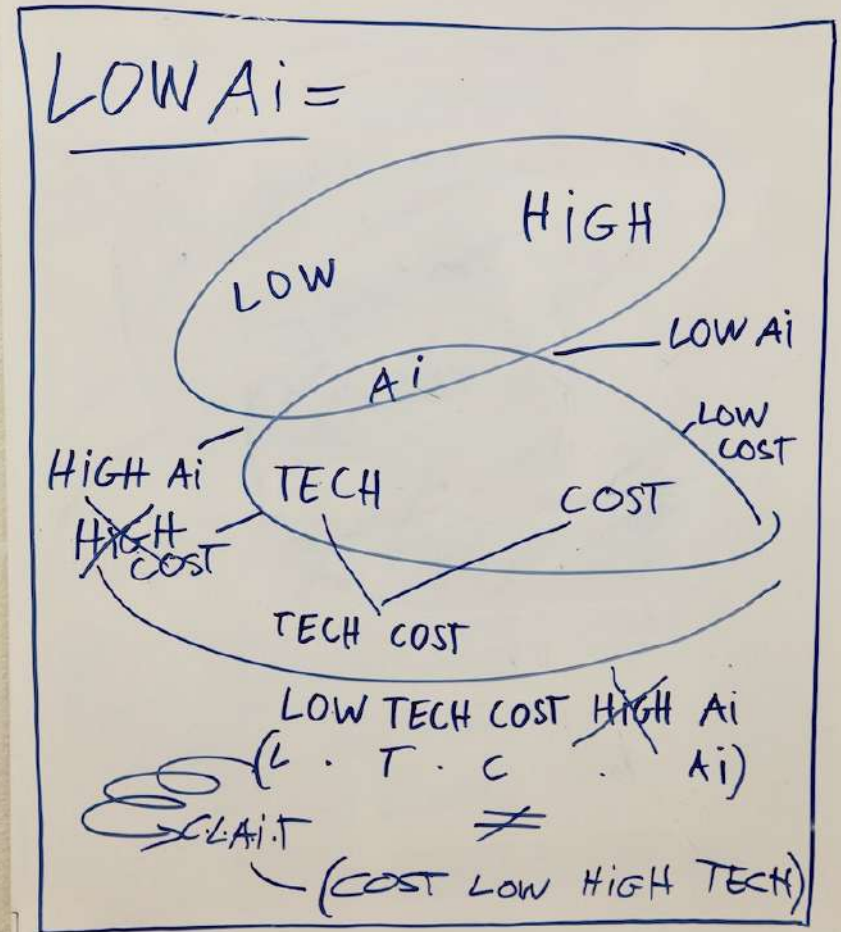 LOW Ai =
HiGH
LOW
LOW Ai
Ai
LOW
COST
HiGH Ai
TECH
COST
HiGH
COST
TECH COST
LOW TECH COST HiGH Ai
(L . T . C . Ai)
C.L.Ai.T
≠
(COST LOW HiGH TECH)